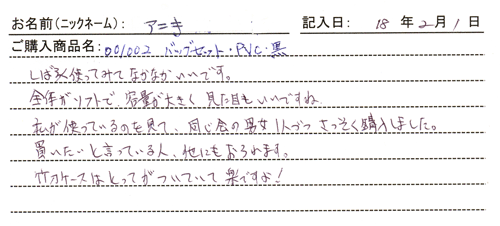 お名前(ニックネーム): アニキ 記入日: 18 年 2 月 1 日
ご購入商品名: 001002 バッグセット・PVC・黒
しばらく使ってみて なかなかいいです。
全体がソフトで、容量が大きく 見た目もいいですね
私が使っているのを見て、同じ会の男女1人づつ さっそく購入しました。
買いたいと言っている人、他にもおられます。
竹刀ケースはとってがついていて 楽ですよ!